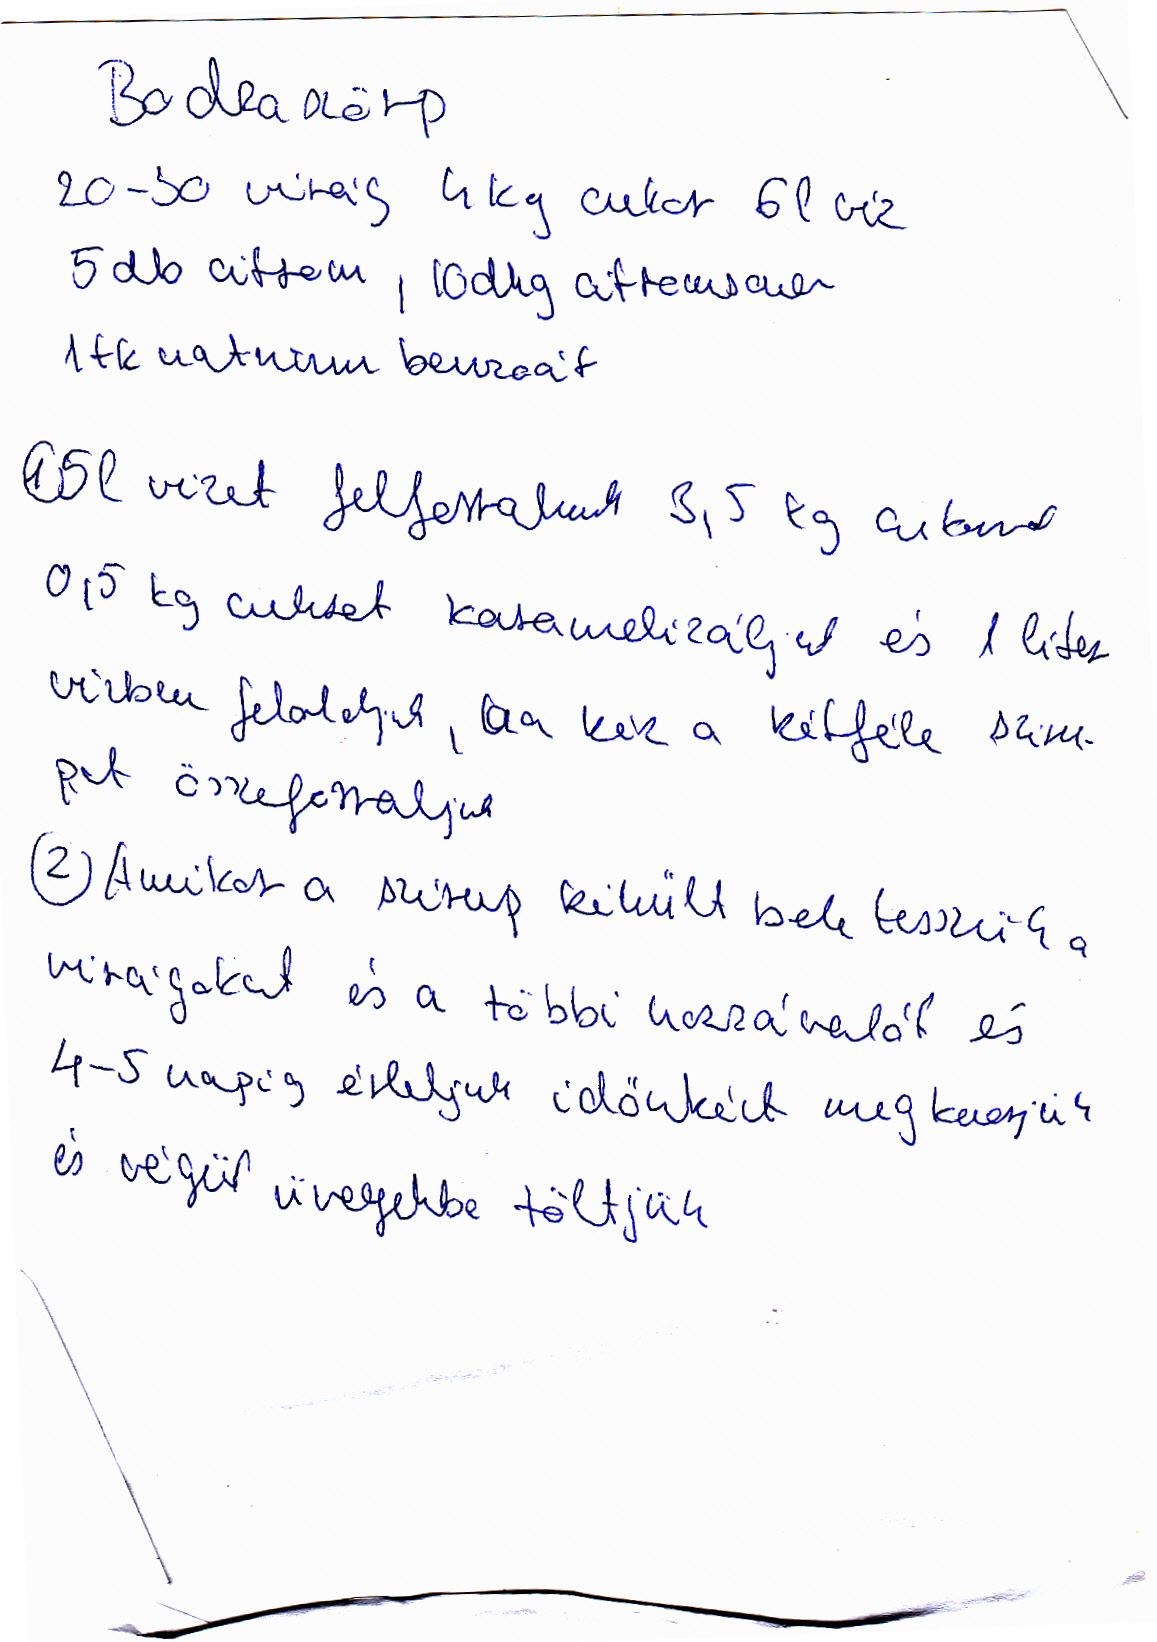 Bodzaszörp
20-30 virág 4 kg cukor 6 l víz
5 db citrom, 10 dkg citromsav
1 tk nátrium benzoát
① 5 l vizet felforralunk 3,5 kg cukorral
0,5 kg cukrot karamelizáljuk és 1 liter
vízben feloldjuk, ha kész a kétféle sziru-
pot összeforraljuk
② Amikor a szirup kihült bele tesszük a
virágokat és a többi hozzávalót és
4-5 napig érleljük időnként megkeverjük
és végül üvegekbe töltjük